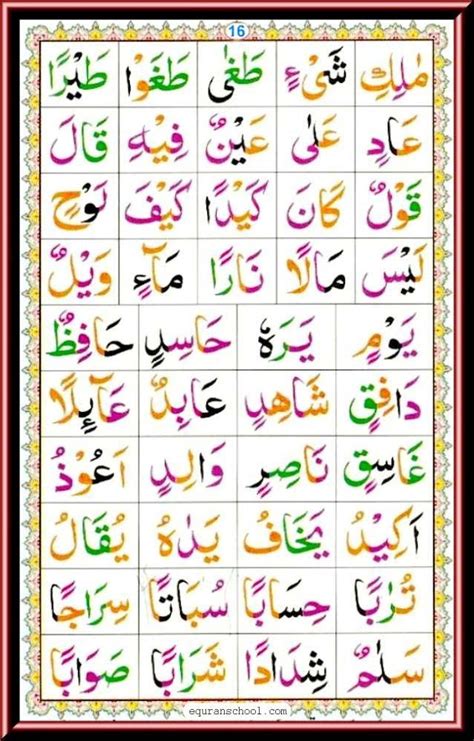 16
مٰلِكِ شَىْءٍ طَغٰى طَغَوْا طَيْرًا
عَادٍ عَلٰى عَيْنٌ فِيْهِ قَالَ
قَوْلٌ كَانَ كَيْدًا كَيْفَ لَوْحٍ
لَيْسَ مَالًا نَارًا مَآءٍ وَيْلٌ
يَوْمٍ يَرَهٗ حَاسِدٍ حَافِظٌ
دَافِقٍ شَاهِدٍ عَابِدٌ عَآىِٕلًا
غَاسِقٍ نَاصِرٍ وَالِدٍ اَعُوْذُ
اَكِيْدُ يَخَافُ يَدٰهُ يُقَالُ
تُرٰبًا حِسَابًا سُبَاتًا سِرَاجًا
سَلٰمٌ شِدَادًا شَرَابًا صَوَابًا
equranschool.com